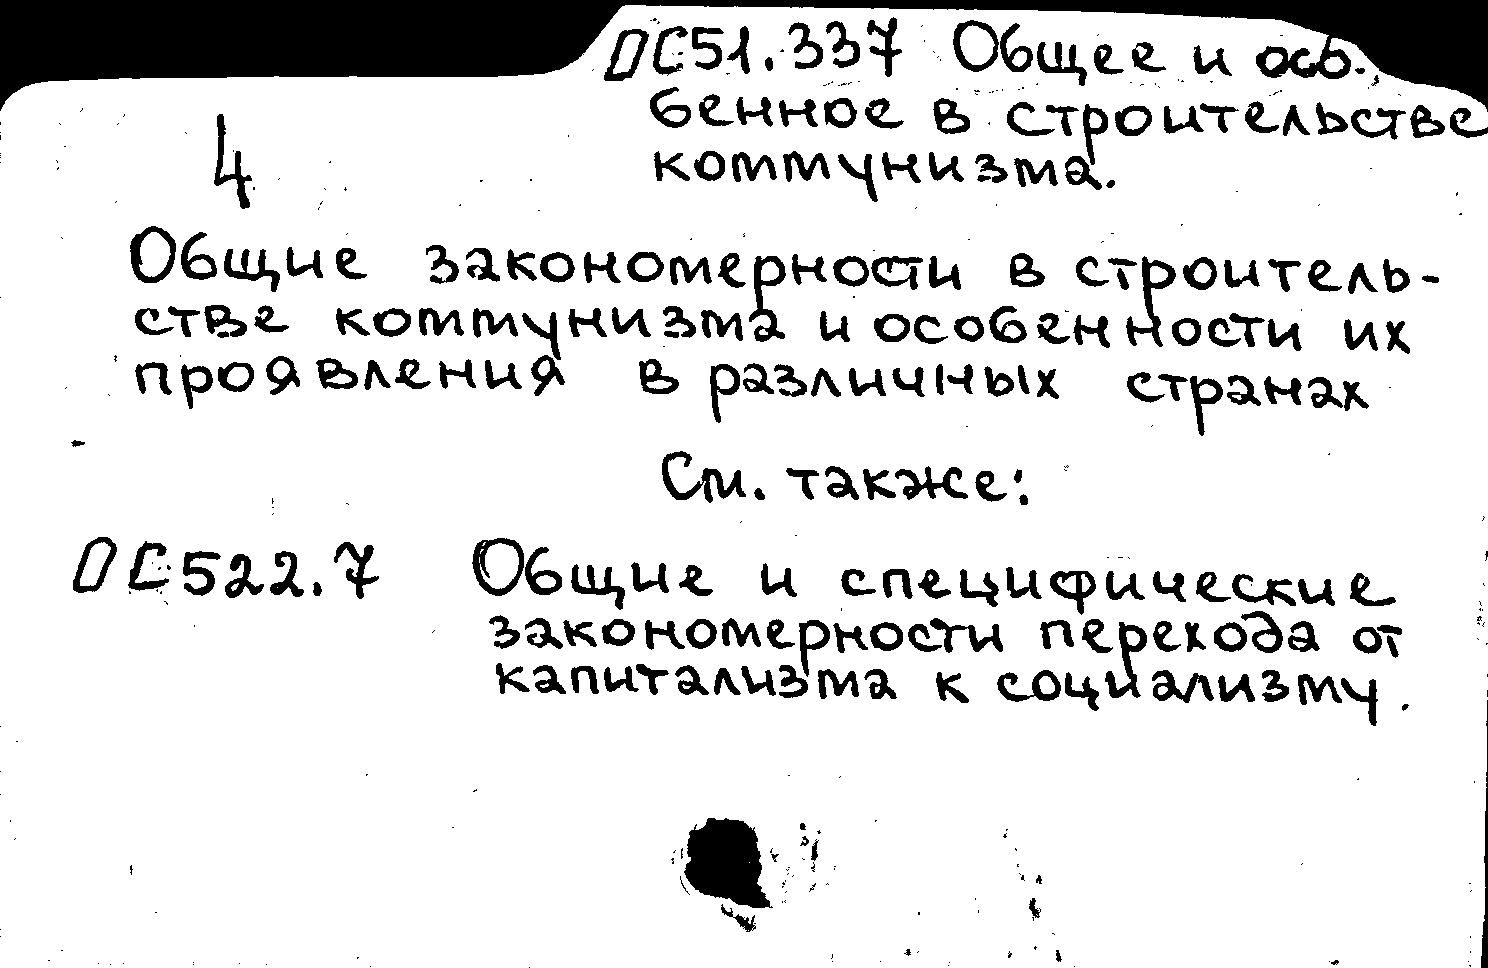 ОС51.337 Общее и осо-
бенное в строительстве
коммунизма.
4
Общие закономерности в строитель-
стве коммунизма и особенности их
проявления в различных странах
См. также:
ОС522.7 Общие и специфические
закономерности перехода от
капитализма к социализму.